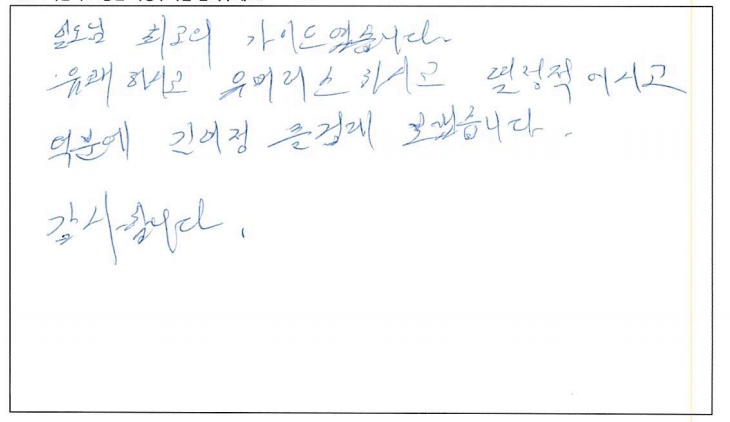 최고의 가이드였습니다.
유쾌하시고 유머러스하시고 열정적이시고
덕분에 긴여정 즐겁게 보냈습니다.
감사합니다.